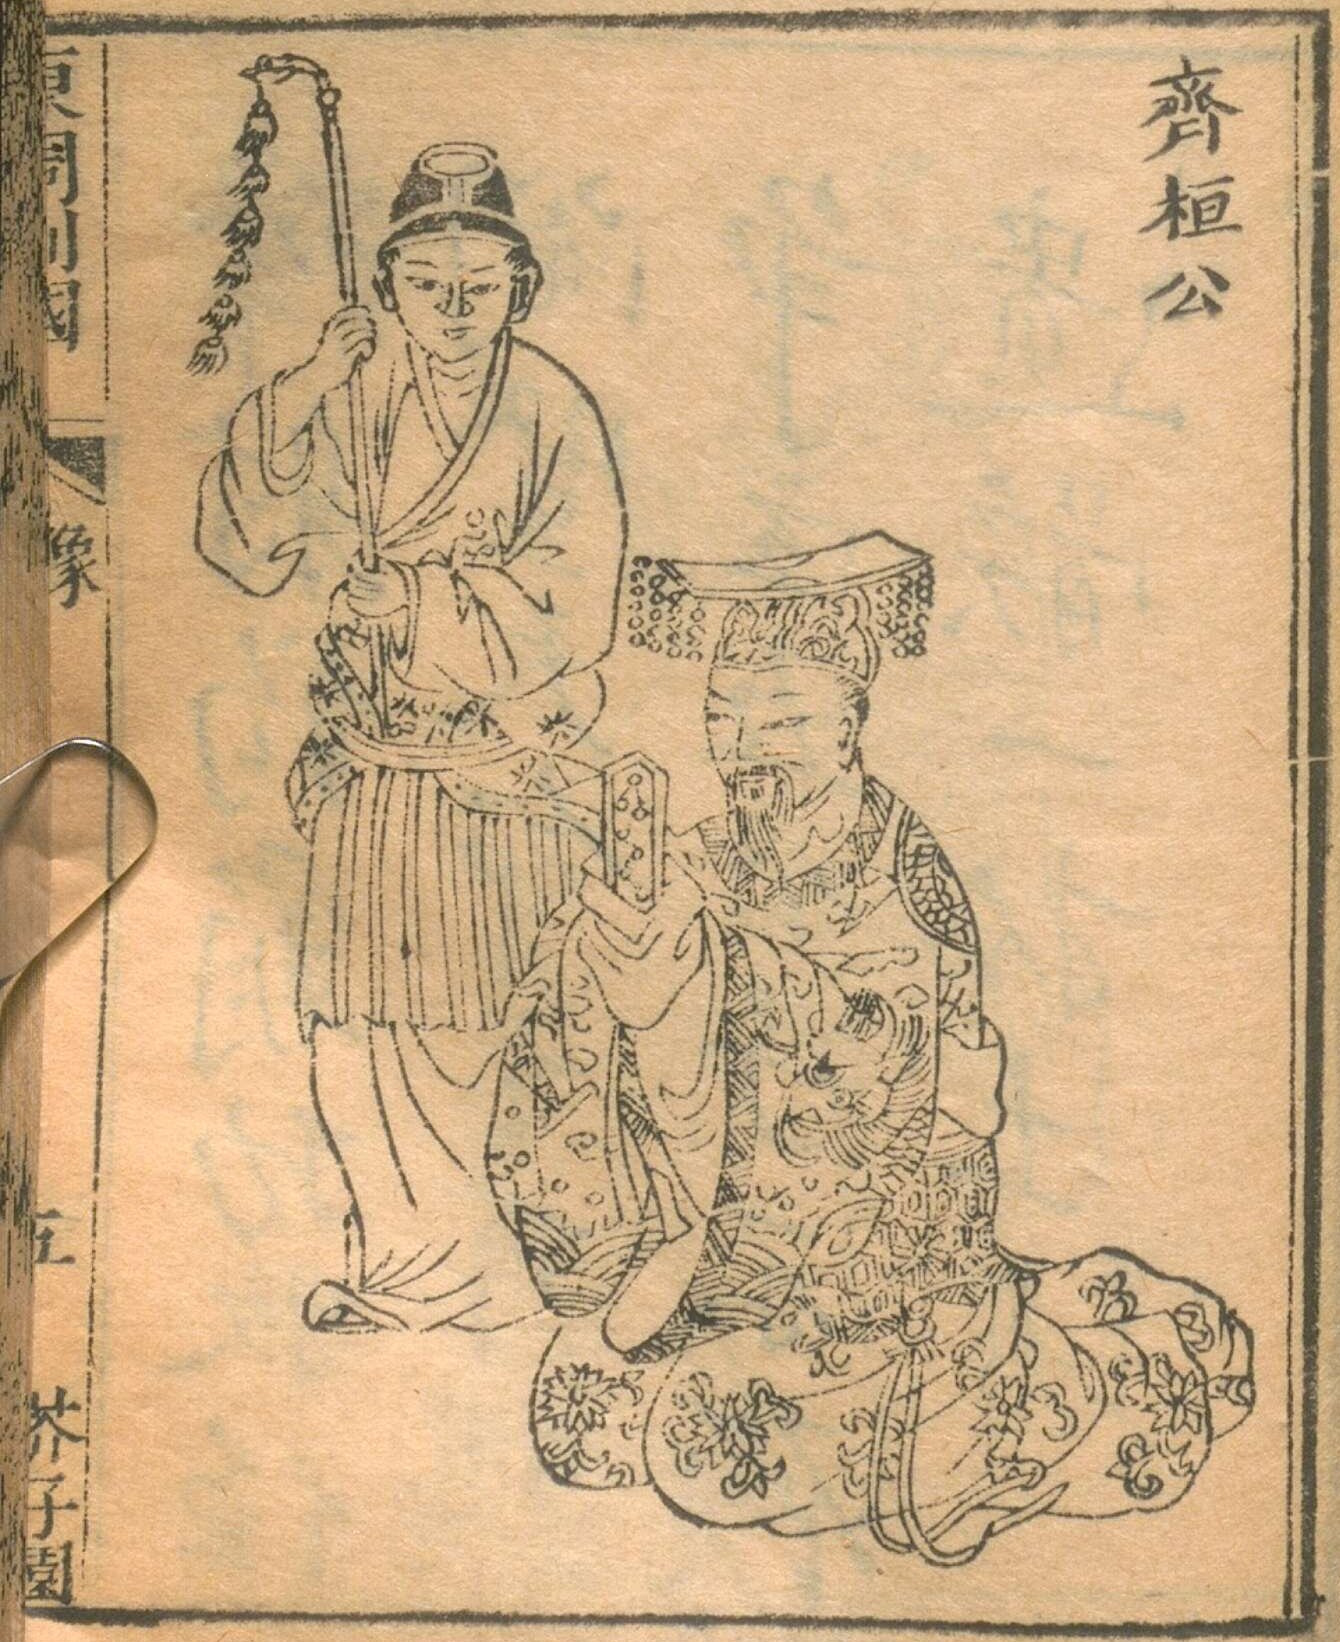 齊桓公
東周列國
像
五
芥子園